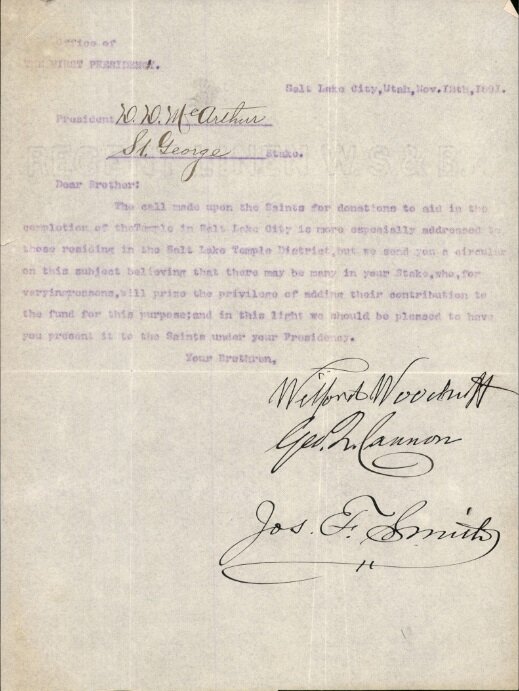 Office of
THE FIRST PRESIDENCY.
Salt Lake City, Utah, Nov. 12th, 1891.
President D. D. McArthur
St. George Stake.
Dear Brother:
The call made upon the Saints for donations to aid in the
completion of theTemple in Salt Lake City is more especially addressed to
those residing in the Salt Lake Temple District,but we send you a circular
on this subject believing that there may be many in your Stake,who,for
varyingreasons,will prize the privilege of adding their contribution to
the fund for this purpose;and in this light we should be pleased to have
you present it to the Saints under your Presidency.
Your Brethren,
Wilford Woodruff
Geo. Q. Cannon
Jos. F. Smith